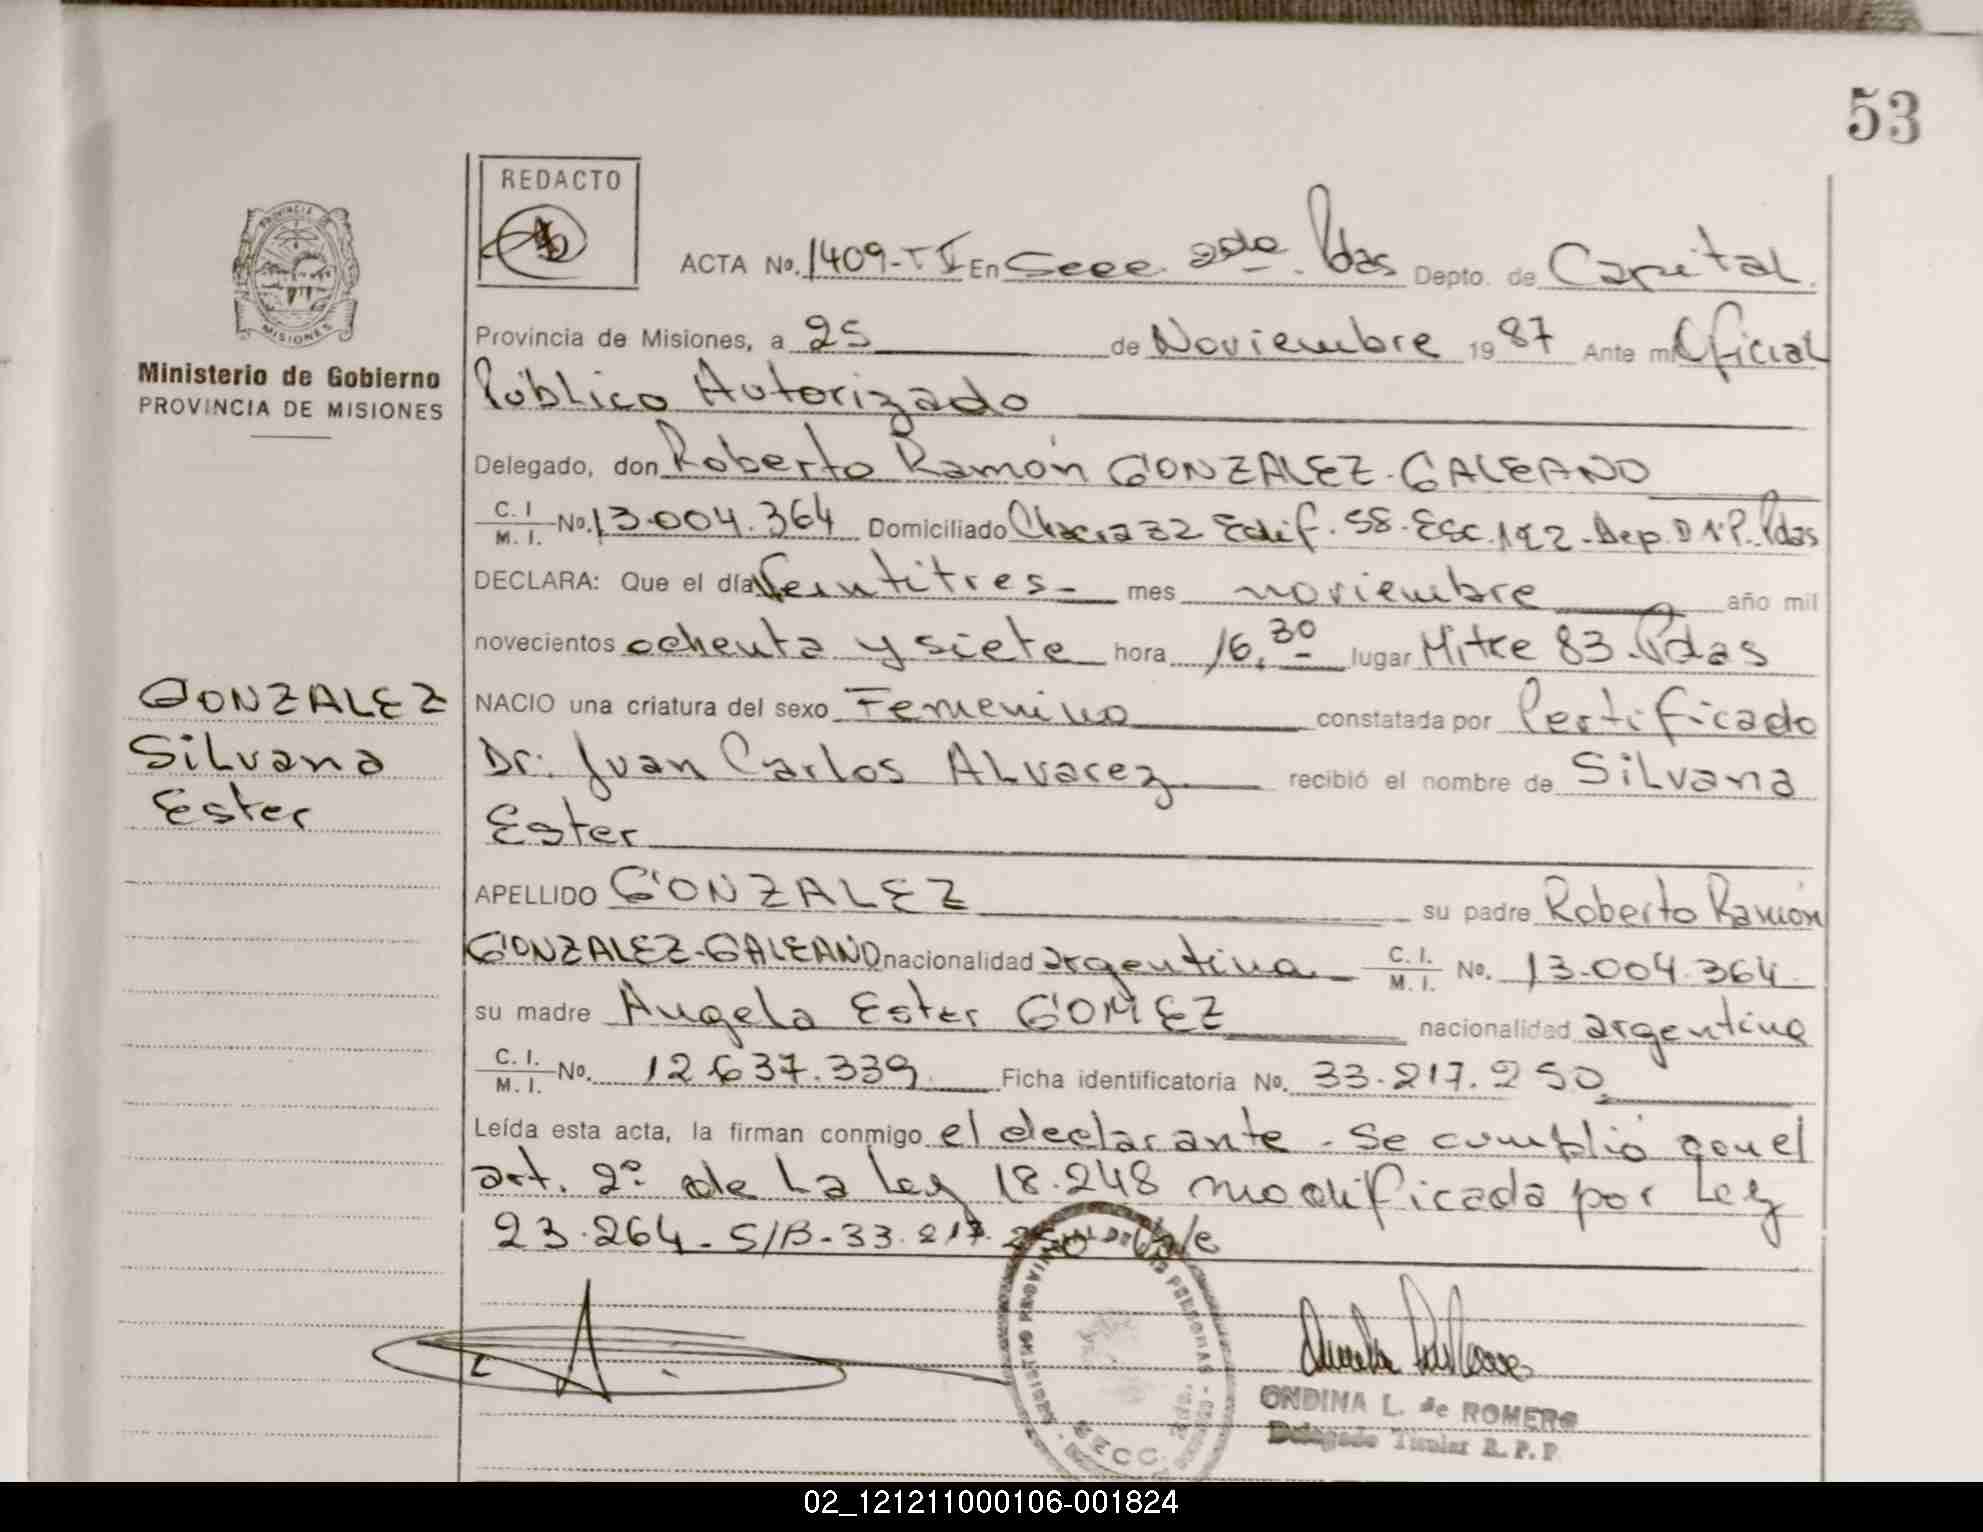 53
REDACTO
ACTA No. 1409-T I En Secc. 2da. Pdas Depto. de Capital.
Provincia de Misiones, a 25 de Noviembre 1987 Ante mi Oficial
Ministerio de Gobierno
PROVINCIA DE MISIONES
Público Autorizado
Delegado, don Roberto Ramón GONZALEZ-GALEANO
C. I M. I. No. 13.004.364 Domiciliado Chacra 32 Edif. 58-Esc. 192-Dep. D Pdas
DECLARA: Que el día Veintitres- mes noviembre año mil
novecientos ochenta y siete hora 16,30 lugar Mitre 83-Pdas
GONZALEZ
Silvana
Ester
NACIO una criatura del sexo Femenino constatada por Certificado
Dr: Juan Carlos Alvarez recibió el nombre de Silvana
Ester
APELLIDO GONZALEZ su padre Roberto Ramón
GONZALEZ-GALEANO nacionalidad argentina C. I. M. I. No. 13.004.364.
su madre Angela Ester GOMEZ nacionalidad argentina
C. I. M. I. No. 12.637.339. Ficha identificatoria No. 33.217.250
Leída esta acta, la firman conmigo el declarante - Se cumplió con el
art. 2º de la Ley 18.248 modificada por Ley
23.264- S/B-33.217.250 Vale
SECC. 2da.
ONDINA L. de ROMERO
Delegado Titular R. P. P.
02_121211000106-001824